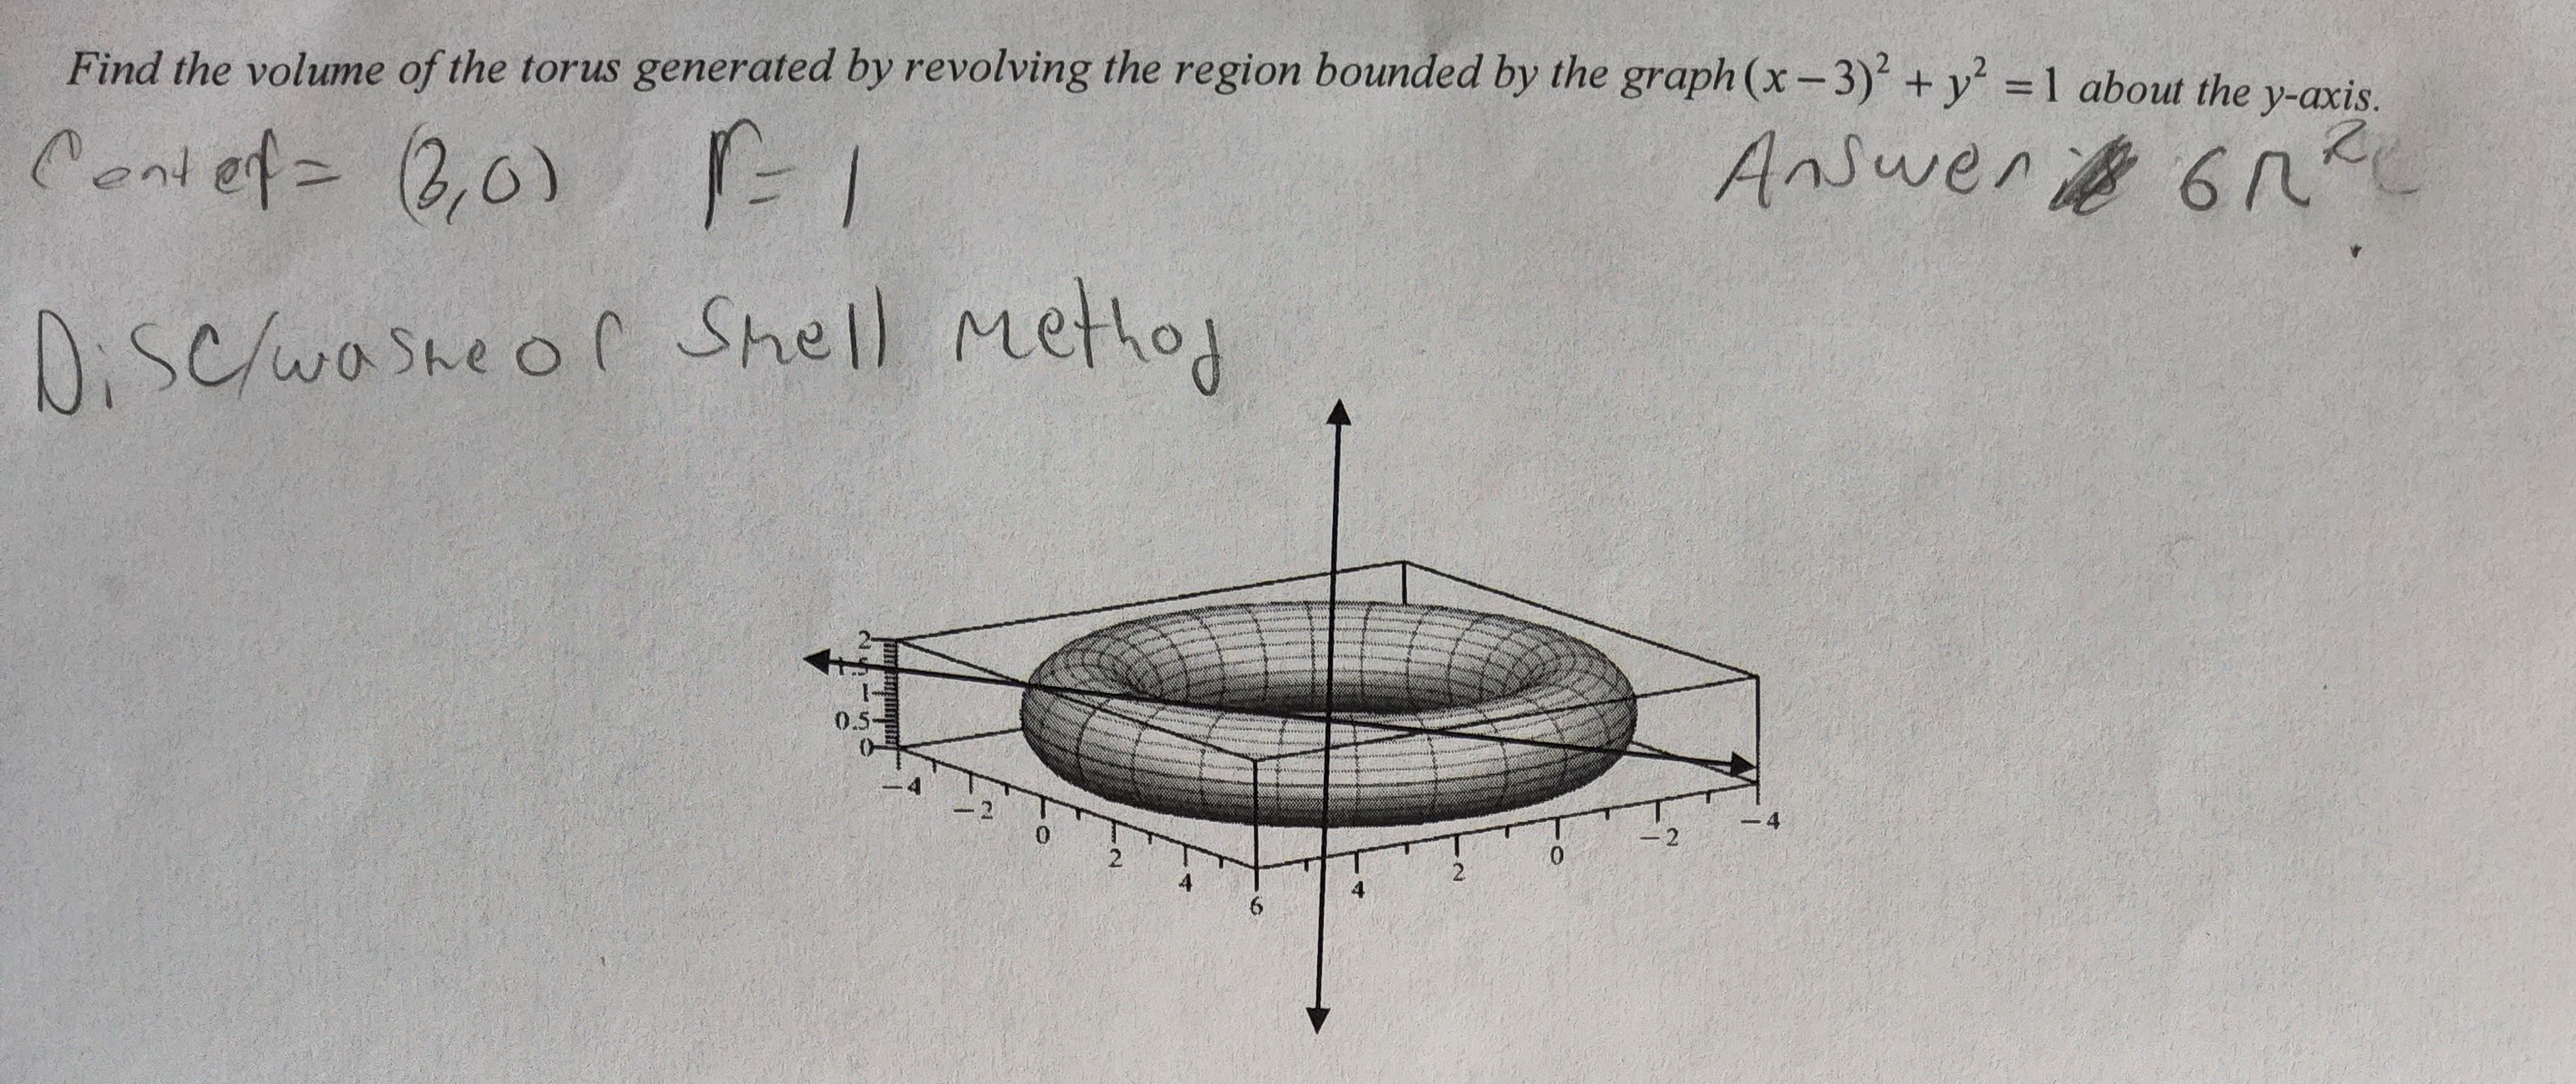 Find the volume of the torus generated by revolving the region bounded by the graph (x – 3)² + y² = 1 about the y-axis.
Center = (3,0) r = 1
Answer 6π²
Disc/washe or Shell Method
2
1.5
1
0.5
0
-4 -2 0 2 4 6
4 2 0 -2 -4